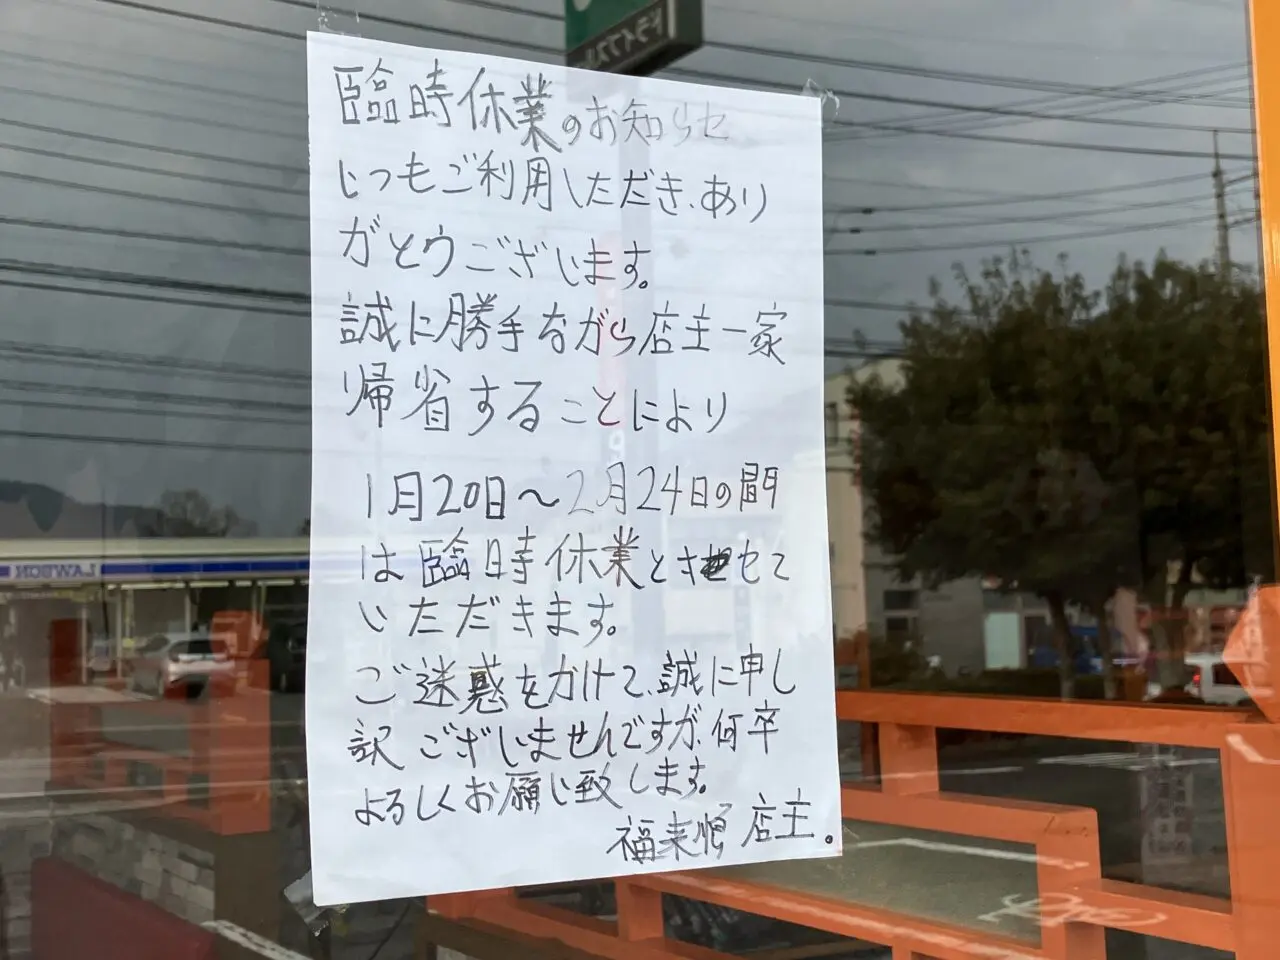 ドライブスル
臨時休業のお知らせ
いつもご利用しただき、あり
がとうございます。
誠に勝手ながら店主一家
帰省することにより
1月20日〜2月24日の間
は臨時休業とさせて
いただきます。
ご迷惑をかけて、誠に申し
訳ございませんですが、何卒
よるしくお願い致します。
福来順 店主。
LAWSON